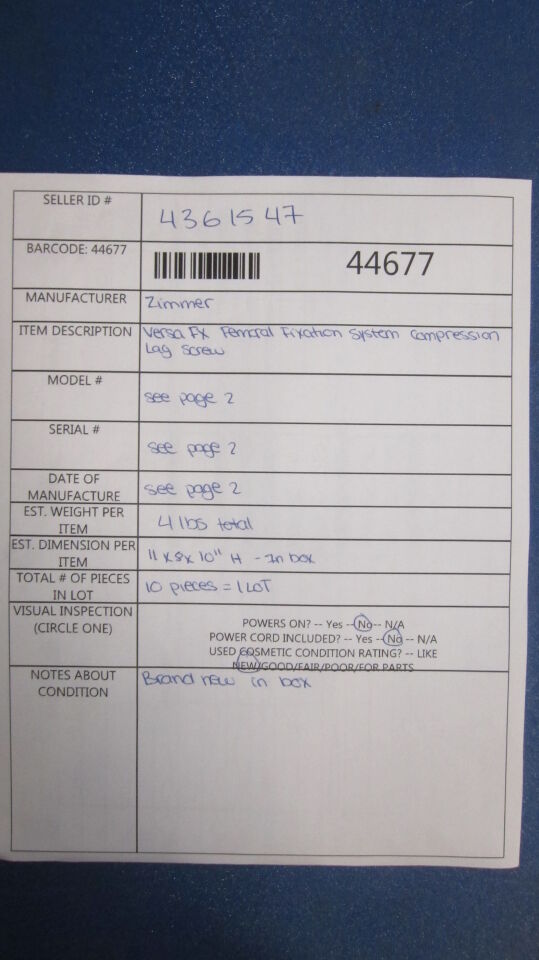 SELLER ID #
4361547
BARCODE: 44677
44677
MANUFACTURER
Zimmer
ITEM DESCRIPTION
Versa Fx Femoral Fixation System Compression
Lag Screw
MODEL #
see page 2
SERIAL #
see page 2
DATE OF
MANUFACTURE
see page 2
EST. WEIGHT PER
ITEM
4 lbs total
EST. DIMENSION PER
ITEM
11 x 8 x 10" H - In box
TOTAL # OF PIECES
IN LOT
10 pieces = 1 LOT
VISUAL INSPECTION
(CIRCLE ONE)
POWERS ON? -- Yes --No-- N/A
POWER CORD INCLUDED? -- Yes --No-- N/A
USED COSMETIC CONDITION RATING? -- LIKE
NEW/GOOD/FAIR/POOR/FOR PARTS
NOTES ABOUT
CONDITION
Brand new in box